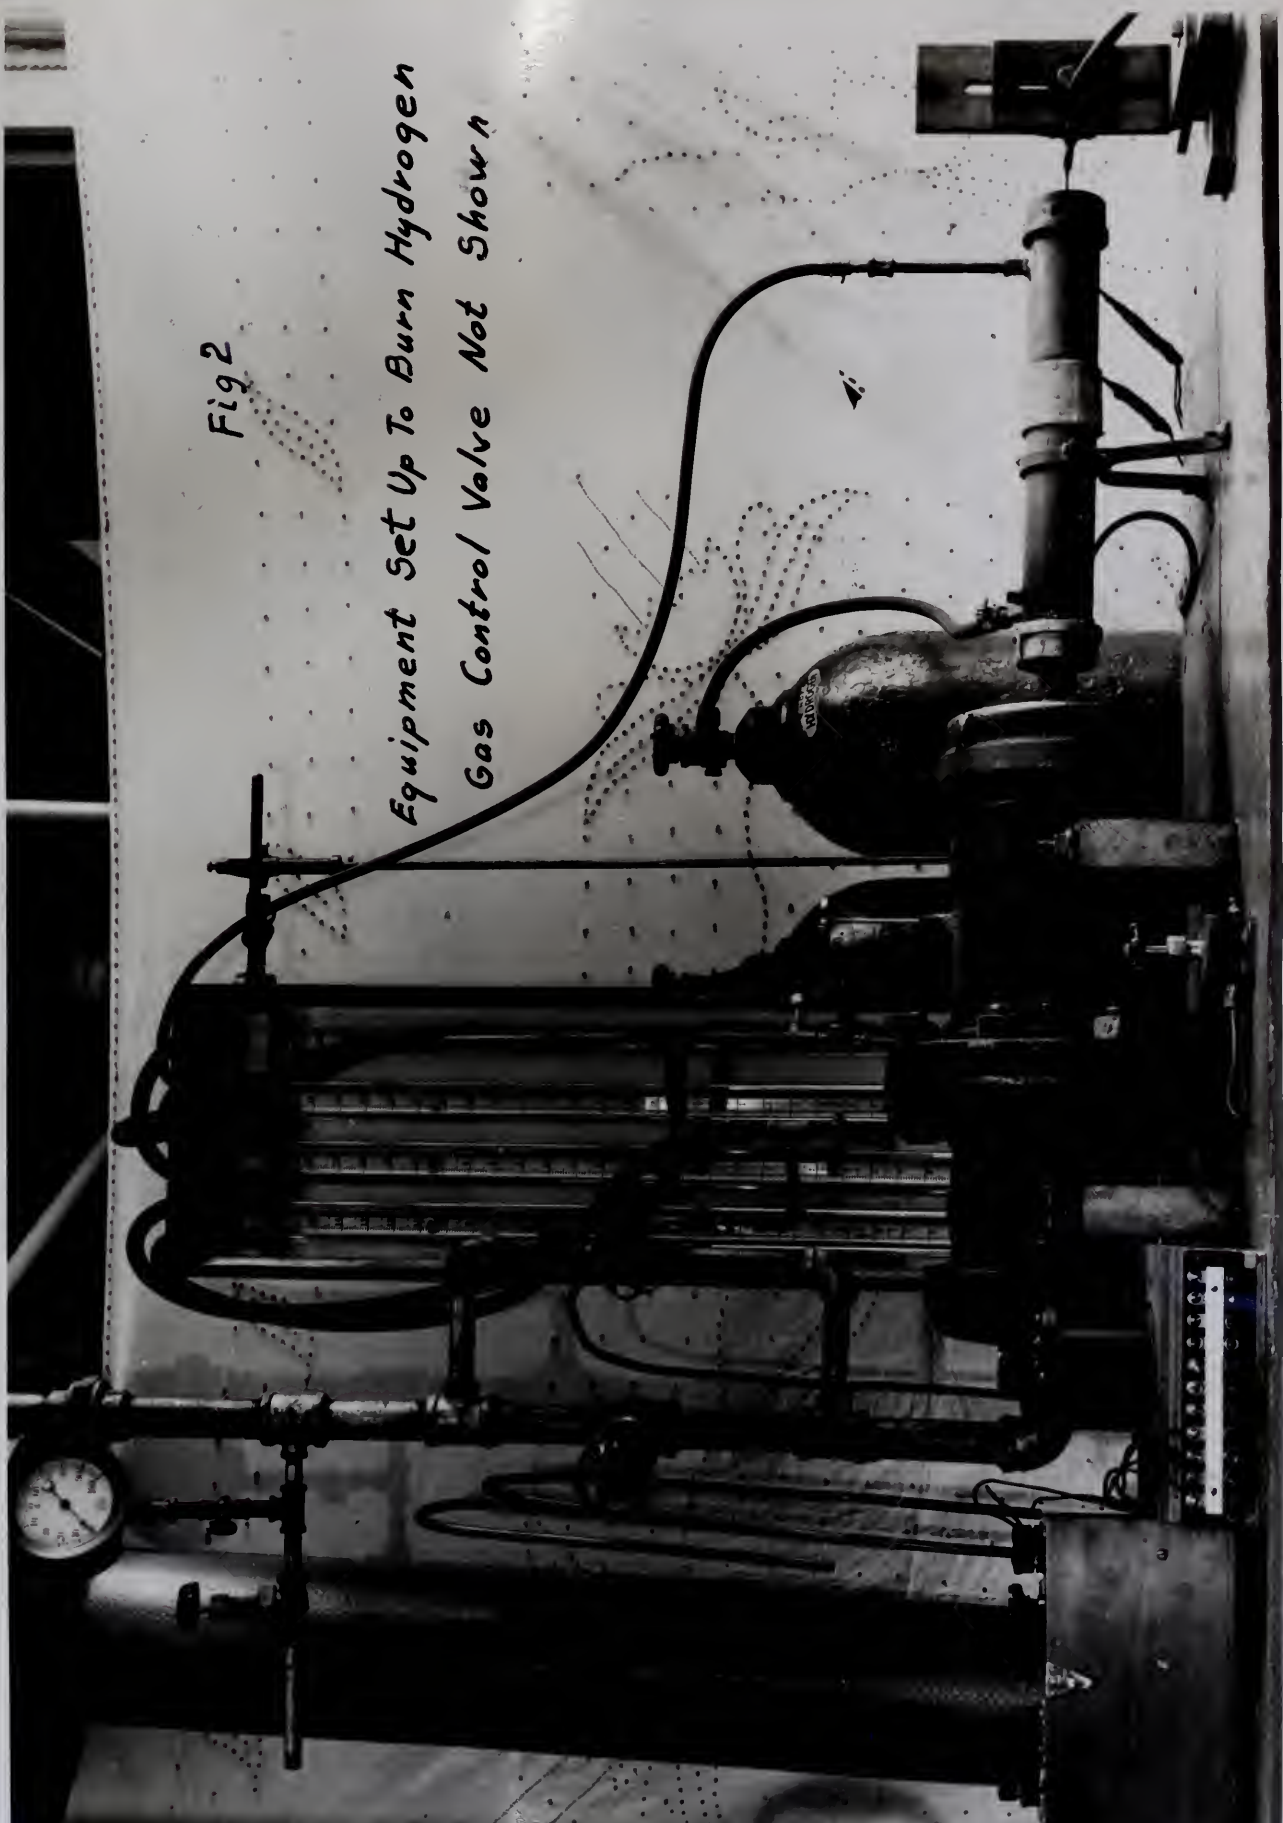 Fig 2
Equipment Set Up To Burn Hydrogen
Gas Control Valve Not Shown
HYDROGEN